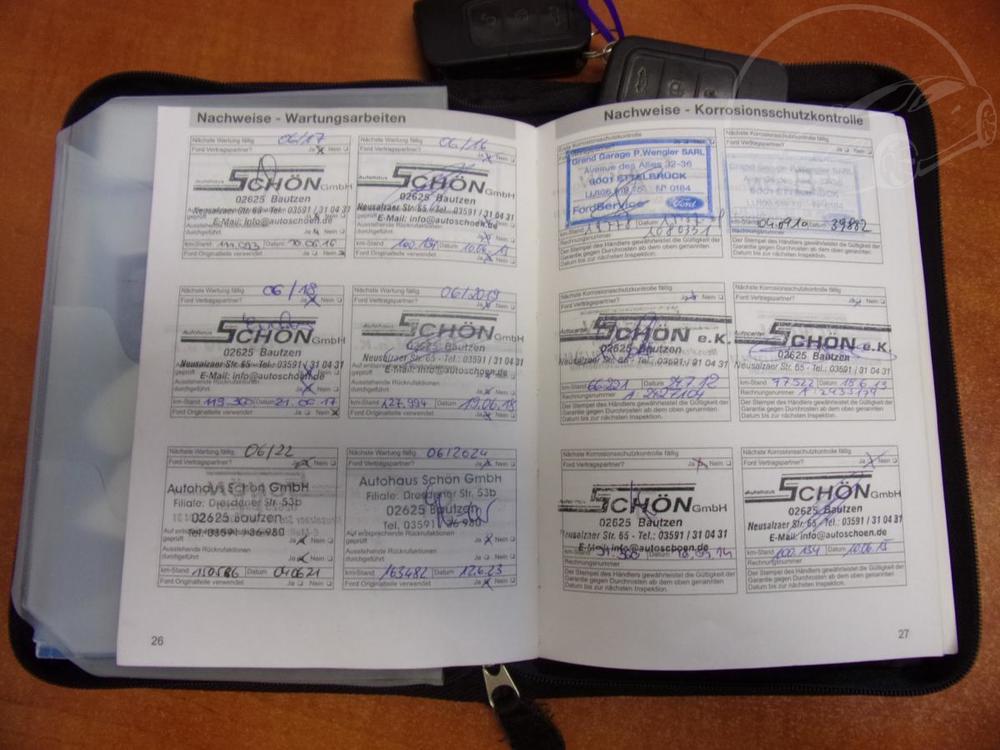 Nachweise - Wartungsarbeiten
Nächste Wartung fällig 06/17
Ford Vertragspartner? Ja Nein
Autohaus SCHÖN GmbH
02625 Bautzen
Neusalzaer Str. 65 - Tel.: 03591 / 31 04 31
E-Mail: info@autoschoen.de
geprüft
Ausstehende Rückrufaktionen
durchgeführt Ja
km-Stand Datum 10.06.16
Ford Originalteile verwendet Ja Nein
Nächste Wartung fällig 06/16
Ja Nein
Autohaus SCHÖN GmbH
02625 Bautzen
Neusalzaer Str. 65 - Tel.: 03591 / 31 04 31
E-Mail: info@autoschoen.de
km-Stand 100.134 Datum 10.06.15
Ford Originalteile verwendet Ja Nein
Nächste Wartung fällig 06/18
Ford Vertragspartner? Ja Nein
Autohaus SCHÖN GmbH
02625 Bautzen
Neusalzaer Str. 65 - Tel.: 03591 / 31 04 31
E-Mail: info@autoschoen.de
geprüft
Ausstehende Rückrufaktionen
durchgeführt
km-Stand 119.305 Datum 21.06.17
Ford Originalteile verwendet Ja Nein
Nächste Wartung fällig 06/2019
Ford Vertragspartner? Ja Nein
Autohaus SCHÖN GmbH
02625 Bautzen
Neusalzaer Str. 65 - Tel.: 03591 / 31 04 31
E-Mail: info@autoschoen.de
Ausstehende Rückrufaktionen
durchgeführt Ja Nein
km-Stand 127.994 Datum 19.06.18
Ford Originalteile verwendet Ja Nein
Nächste Wartung fällig 06/22
Ford Vertragspartner? Ja Nein
Autohaus Schön GmbH
Filiale: Dresdener Str. 53b
02625 Bautzen
Tel. 03591 / 36 980
Auf entsprechende Rückrufaktionen
geprüft Ja Nein
Ausstehende Rückrufaktionen
durchgeführt Ja Nein
km-Stand 150586 Datum 04.06.21
Ford Originalteile verwendet Ja Nein
Nächste Wartung fällig 06/2024
Ford Vertragspartner? Ja Nein
Autohaus Schön GmbH
Filiale: Dresdener Str. 53b
02625 Bautzen
Tel. 03591 / 36 980
Auf entsprechende Rückrufaktionen
geprüft Ja Nein
Ausstehende Rückrufaktionen
durchgeführt Ja Nein
km-Stand 163482 Datum 12.6.23
Ford Originalteile verwendet Ja Nein
26
Nachweise - Korrosionsschutzkontrolle
Korrosionsschutzkontrolle
Grand Garage P.Wengler SARL
Avenue des Alliés 32-36
9001 ETTELBRÜCK
N° 0184
FordService Ford
Datum
Rechnungsnummer 1080351
Der Stempel des Händlers gewährleistet die Gültigkeit der
Garantie gegen Durchrosten ab dem oben genannten
Datum bis zur nächsten Inspektion.
Nächste Korrosionsschutzkontrolle fällig
39882
Rechnungsnummer
Der Stempel des Händlers gewährleistet die Gültigkeit der
Garantie gegen Durchrosten ab dem oben genannten
Datum bis zur nächsten Inspektion.
Nächste Korrosionsschutzkontrolle fällig
Ford Vertragspartner? Ja Nein
Autocenter SCHÖN e.K.
02625 Bautzen
Neusalzaer Str. 65 - Tel.: 03591 / 31 04 31
km-Stand 66221 Datum 24.7.12
Rechnungsnummer
Der Stempel des Händlers gewährleistet die Gültigkeit der
Garantie gegen Durchrosten ab dem oben genannten
Datum bis zur nächsten Inspektion.
Nächste Korrosionsschutzkontrolle fällig
Ford Vertragspartner? Ja Nein
Autocenter SCHÖN e.K.
02625 Bautzen
Neusalzaer Str. 65 - Tel.: 03591 / 31 04 31
km-Stand 77.522 Datum 18.6.13
Rechnungsnummer
Der Stempel des Händlers gewährleistet die Gültigkeit der
Garantie gegen Durchrosten ab dem oben genannten
Datum bis zur nächsten Inspektion.
Nächste Korrosionsschutzkontrolle fällig
Ford Vertragspartner? Ja Nein
Autohaus SCHÖN GmbH
02625 Bautzen
Neusalzaer Str. 65 - Tel.: 03591 / 31 04 31
E-Mail: info@autoschoen.de
km-Stand Datum
Rechnungsnummer
Der Stempel des Händlers gewährleistet die Gültigkeit der
Garantie gegen Durchrosten ab dem oben genannten
Datum bis zur nächsten Inspektion.
Nächste Korrosionsschutzkontrolle fällig
Ford Vertragspartner? Ja Nein
Autohaus SCHÖN GmbH
02625 Bautzen
Neusalzaer Str. 65 - Tel.: 03591 / 31 04 31
E-Mail: info@autoschoen.de
km-Stand 100.134 Datum 10.06.15
Rechnungsnummer
Der Stempel des Händlers gewährleistet die Gültigkeit der
Garantie gegen Durchrosten ab dem oben genannten
Datum bis zur nächsten Inspektion.
27